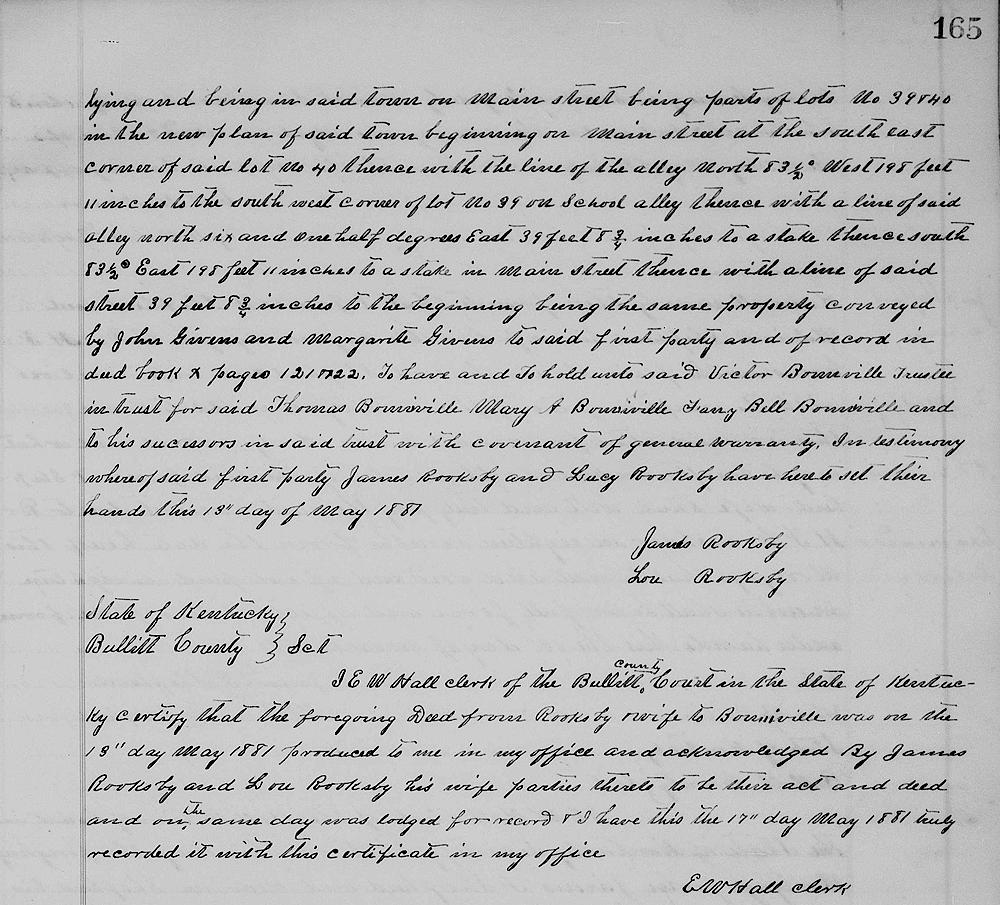 165
lying and being in said town on Main street being parts of lots No 39 & 40
in the new plan of said town beginning on Main street at the south east
corner of said lot No 40 thence with the line of the alley North 83 1/2° West 198 feet
11 inches to the south west corner of lot No 39 on School alley thence with a line of said
alley north six and one half degrees East 39 feet 8 3/4 inches to a stake thence south
83 1/2° East 198 feet 11 inches to a stake in Main street thence with a line of said
street 39 feet 8 3/4 inches to the beginning being the same property conveyed
by John Givens and Margarite Givens to said first party and of record in
deed book X pages 121 122. To have and To hold unto said Victor Bonniville Trustee
in trust for said Thomas Bonniville Mary A Bonniville Fany Bell Bonniville and
to his sucessors in said trust with covenant of general warranty. In testimony
where of said first party James Rooksby and Lucy Rooksby have here to set their
hands this 13" day of May 1881
James Rooksby
Lou Rooksby
State of Kentucky }
Bullitt County } Sct
I E W Hall clerk of the Bullitt County Court in the State of Kentuc-
ky certify that the foregoing Deed from Rooksby & wife to Bonniville was on the
13" day May 1881 produced to me in my office and acknowledged By James
Rooksby and Lou Rooksby his wife parties thereto to be their act and deed
and on the same day was lodged for record & I have this the 17" day May 1881 truly
recorded it with this certificate in my office
E W Hall clerk